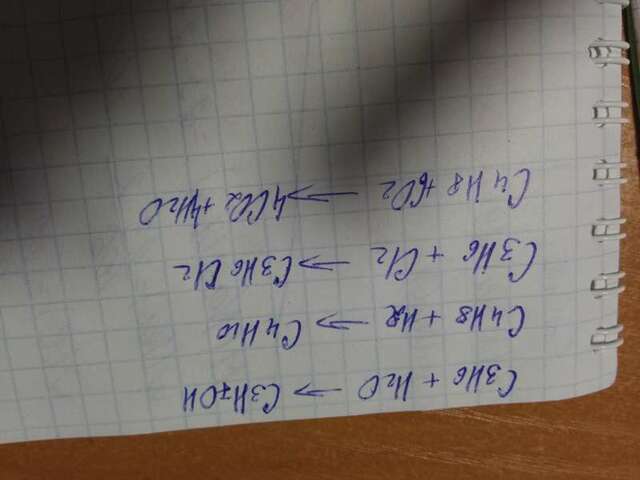 C3H6 + H2O → C3H7OH
C4H8 + H2 → C4H10
C3H6 + Cl2 → C3H6Cl2
C4H8 + 6O2 → 4CO2 + 4H2O